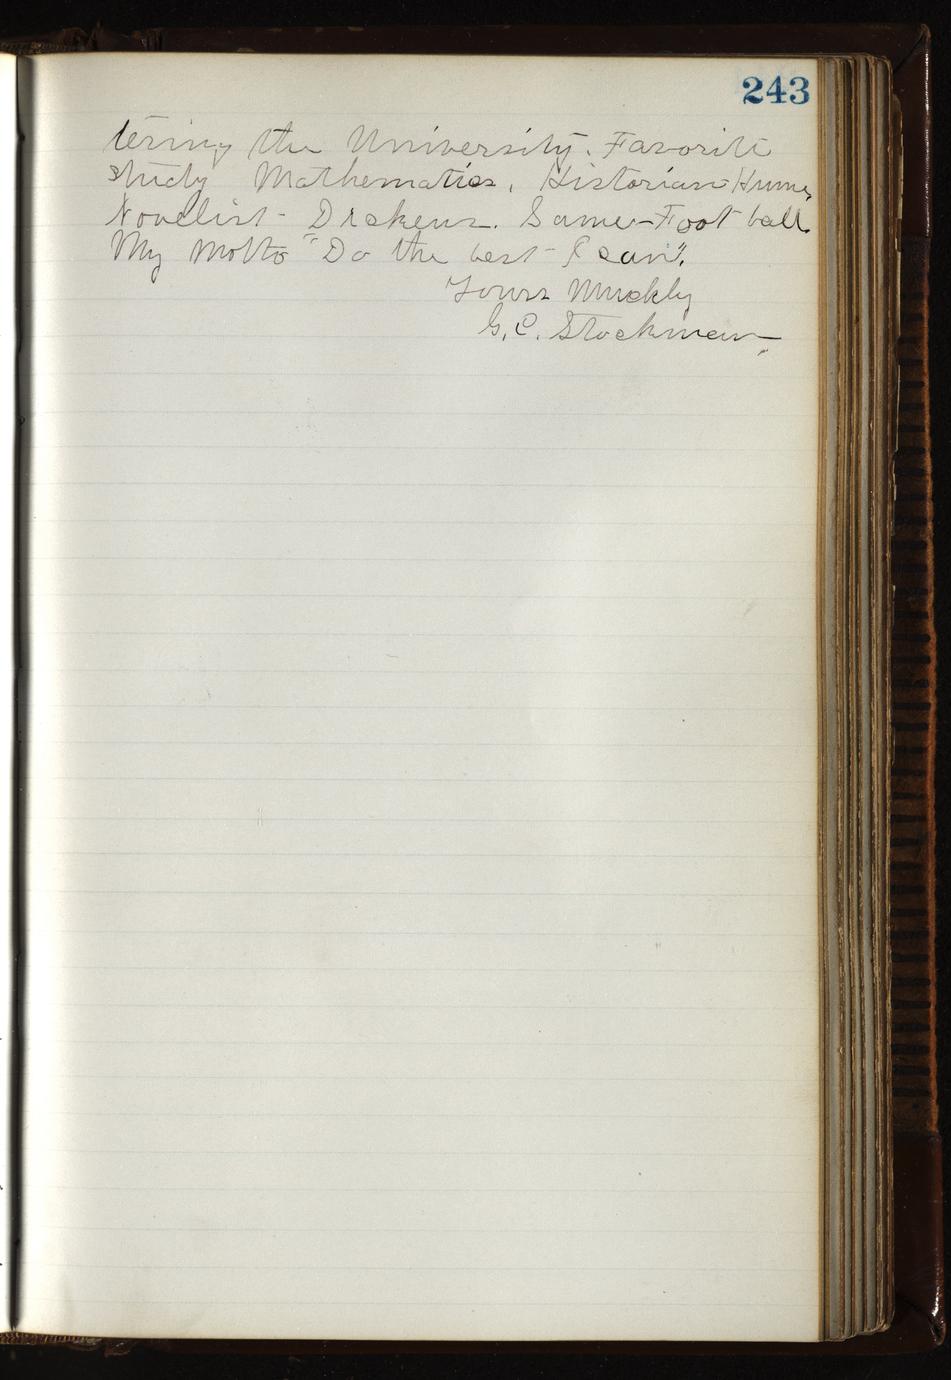 243
tering the University. Favorite
study Mathematics. Historian-Hume,
Novelist- Dickens. Game-Foot ball.
My Motto "Do the best I can".
Yours Muckly
G. C. Stockman